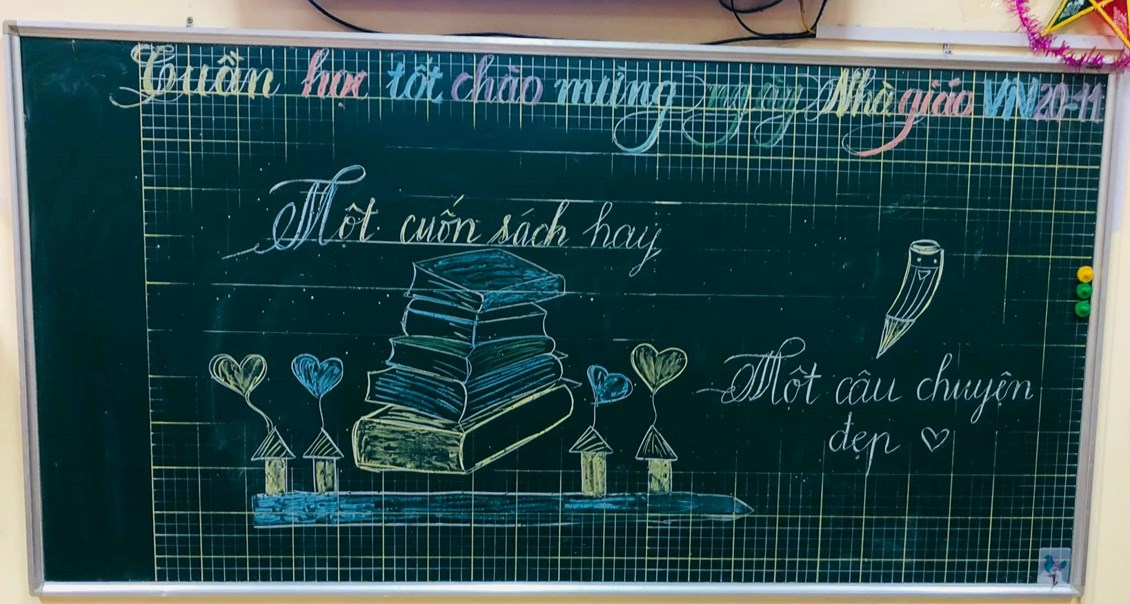 Tuần học tốt chào mừng ngày Nhà giáo VN 20-11
Một cuốn sách hay
Một câu chuyện
đẹp ♡